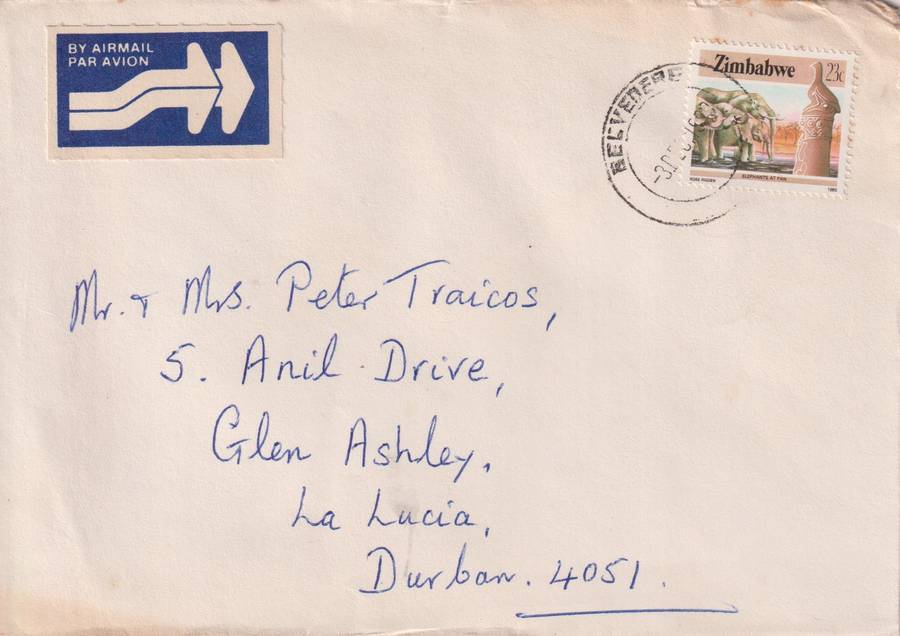 BY AIRMAIL
PAR AVION
Zimbabwe 23c
BELVEDERE
ELEPHANTS AT PAN
1985
Mr. & Mrs. Peter Traicos,
5. Anil Drive,
Glen Ashley,
La Lucia,
Durban. 4051.